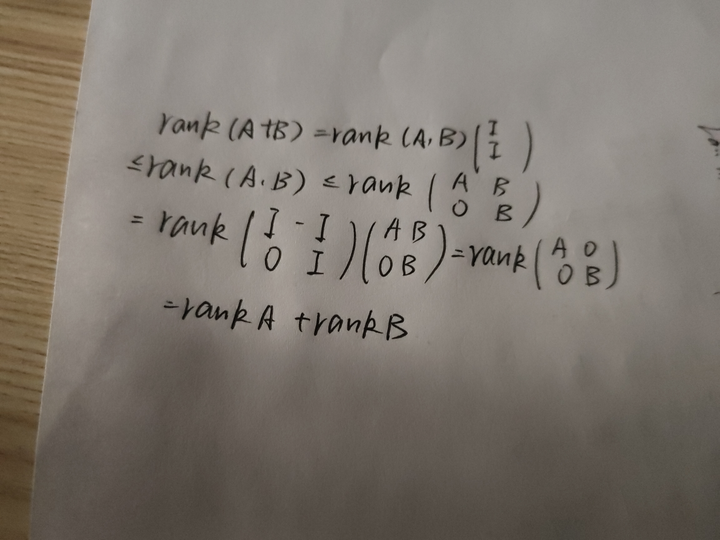 rank(A+B) = rank(A,B)(I I)
≤rank(A,B) ≤ rank(A B O B)
= rank(I -I O I)(A B O B) = rank(A O O B)
= rankA + rankB